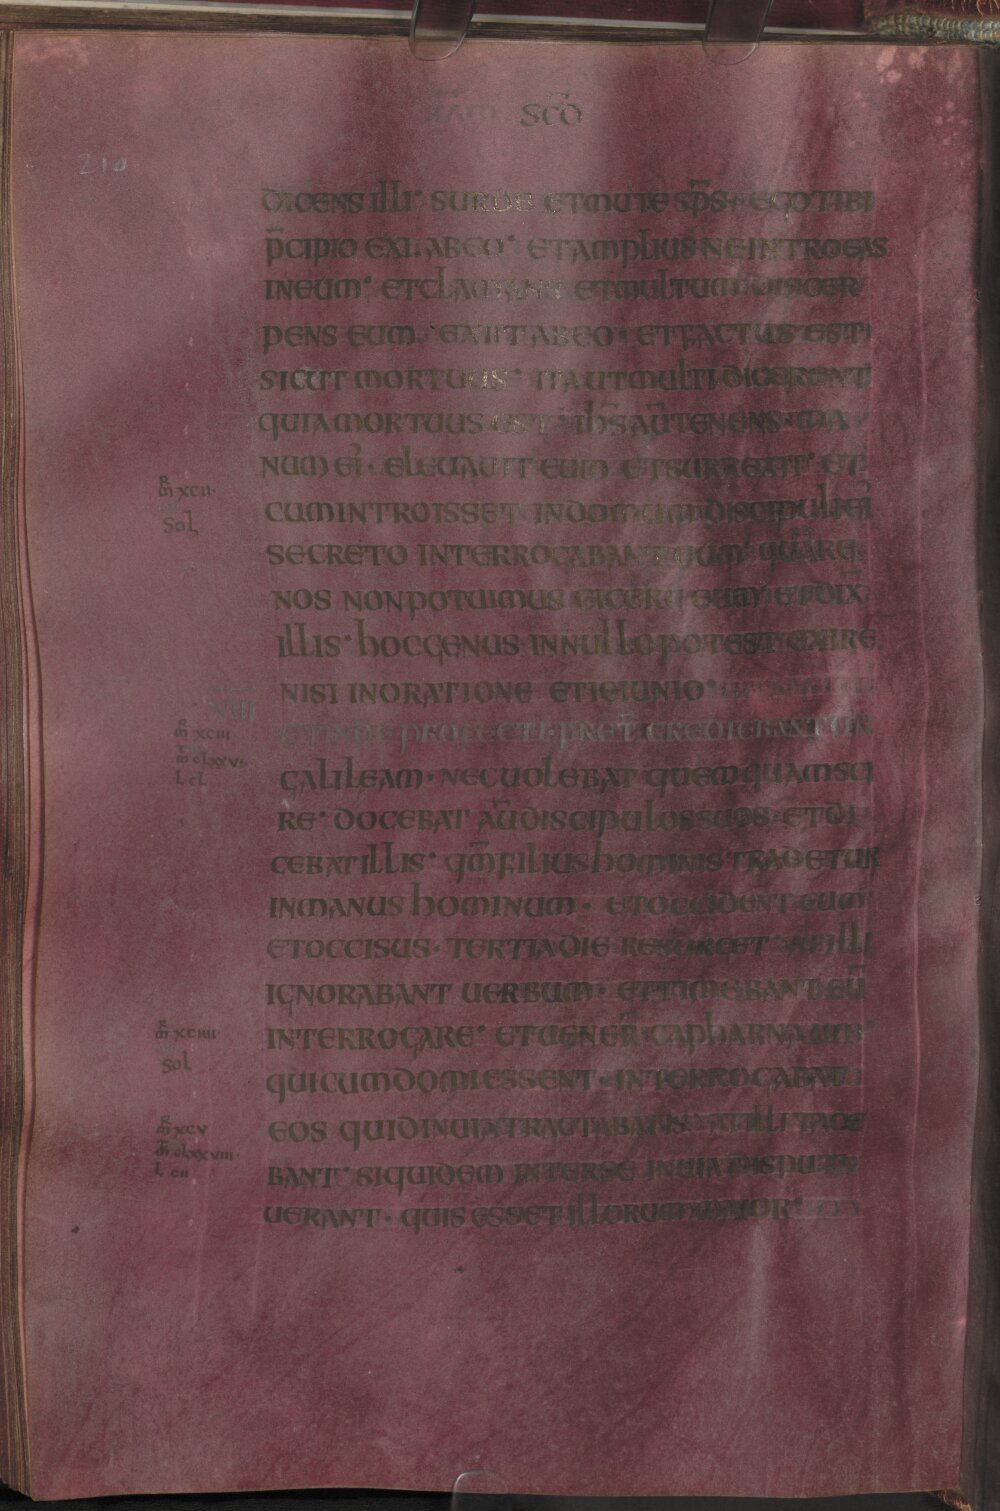 SCD̄
210
DICENS ILLI· SURDE ETMUTE SP̄S· EGO TIBI
P̄CIPIO EXI· ABEO· ETAMPLIUS NEINTROEAS
INEUM· ETCLAMANS ETMULTUM DISCER
PENS EUM· EXIIT ABEO· ETFACTUS EST
SICUT MORTUUS· ITAUTMULTI DICERENT
QUIAMORTUUS EST· IH̄S AŪTENENS· MA
NUM EI· ELEUAUIT EUM ETSURREXIT· ET
m̄ xcii·
Sol
CUMINTROISSET INDOMUM DISCIPULI EI
SECRETO INTERROGABANT EUM· QUARE
NOS NONPOTUIMUS EICERE EUM· ETDIX̄
ILLIS· hOCGENUS INNULLO POTEST EXIRE
NISI INORATIONE ETIEIUNIO·
m̄ xciii
m̄ clxxvi·
L cl
GALILEAM· NECUOLEBAT QUEMQUAMSCI
RE· DOCEBAT AŪDISCIPULOS SUOS· ETDI
CEBATILLIS· QM̄FILIUS hOMINIS TRADETUR
INMANUS hOMINUM· ETOCCIDENT EUM
ETOCCISUS· TERTIADIE RESURGET· ATILLI
IGNORABANT UERBUM· ETTIMEBANT EŪ
m̄ xciiii·
Sol
INTERROGARE· ETUENER̄ CAPhARNAUM·
QUICUMDOMI ESSENT· INTERROGABAT
m̄ xcv
m̄ clxxviii·
L cii
EOS QUIDINUIA TRACTABATIS· ATILLI TACE
BANT· SIQUIDEM INTERSE INUIA DISPUTA
UERANT· QUIS ESSET ILLORUM MAIOR·